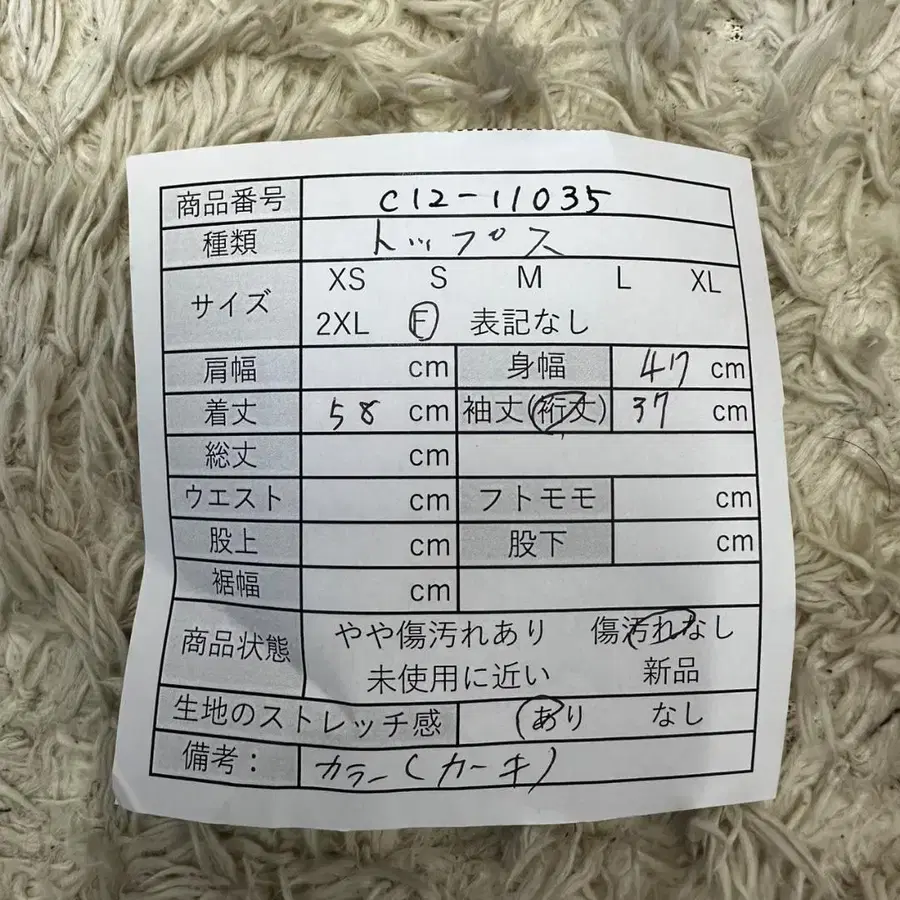 商品番号 C12-11035
種類 トップス
サイズ XS S M L XL
2XL F 表記なし
肩幅 cm 身幅 47 cm
着丈 58 cm 袖丈(裄丈) 37 cm
総丈 cm
ウエスト cm フトモモ cm
股上 cm 股下 cm
裾幅 cm
商品状態 やや傷汚れあり 傷汚れなし
未使用に近い 新品
生地のストレッチ感 あり なし
備考: カラー(カーキ)